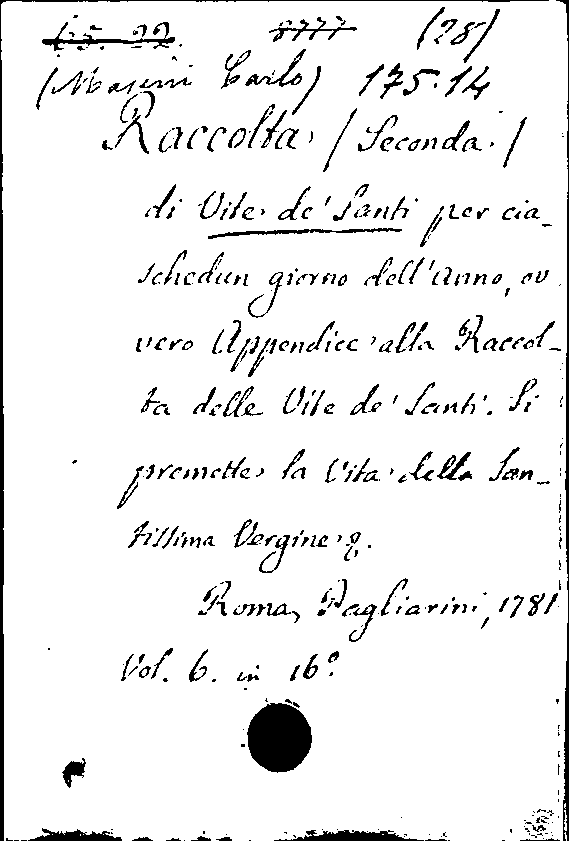 15. 22. 8777 (28)
(Masini Carlo) 175.14
Raccolta (Seconda)
di Vite de' Santi per cia-
schedun giorno dell'Anno, ov
vero Appendice alla Raccol-
ta delle Vite de' Santi. Si
premette la Vita della San-
tissima Vergine &.
Roma, Pagliarini, 1781
Vol. 6. in 16º